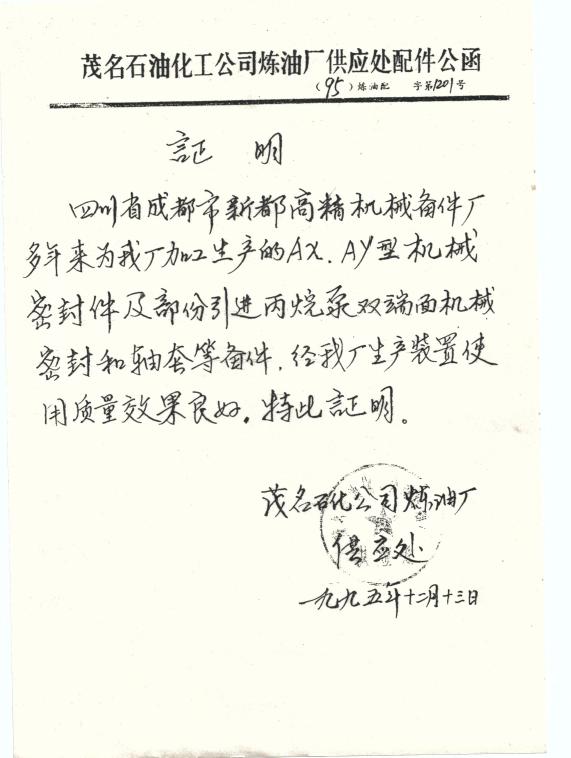 茂名石油化工公司炼油厂供应处配件公函
(95)炼油配 字第1201号
証 明
四川省成都市新都高精机械备件厂
多年来为我厂加工生产的AX、AY型机械
密封件及部份引进丙烷泵双端面机械
密封和轴套等备件,经我厂生产装置使
用质量效果良好。特此証明。
茂名石化公司炼油厂
供应处
一九九五年十二月十三日